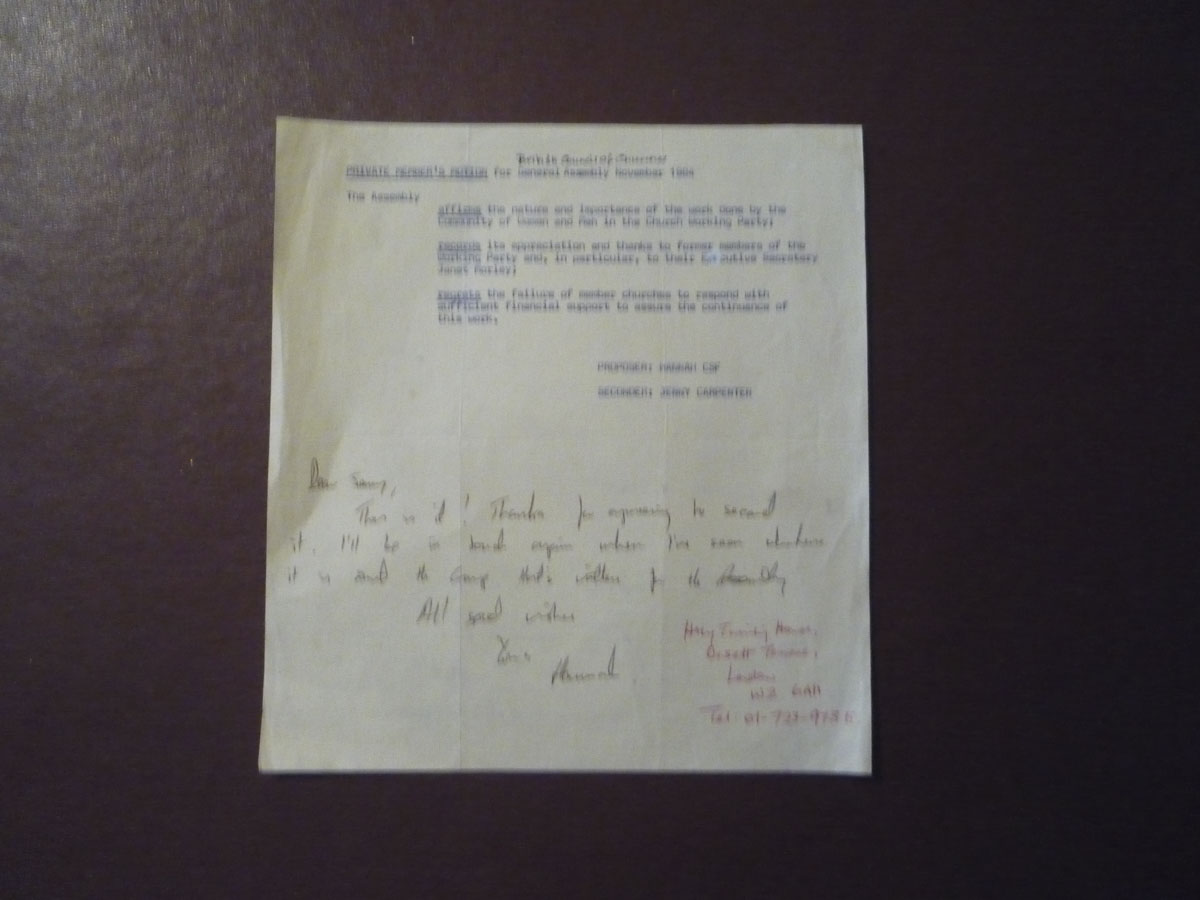 British Council of Churches
PRIVATE MEMBER'S MOTION for General Assembly November 1984
The Assembly
affirms the nature and importance of the work done by the
Community of Women and Men in the Church Working Party;
records its appreciation and thanks to former members of the
Working Party and, in particular, to their Executive Secretary
Janet Morley;
regrets the failure of member churches to respond with
sufficient financial support to assure the continuance of
this work.
PROPOSER: HANNAH CSF
SECONDER: JENNY CARPENTER
Dear Jenny,
This is it! Thanks for agreeing to second
it. I'll be in touch again when I've seen
it is and the that's written for the Assembly
All good wishes
Yours
Hannah.
Holy Trinity House,
Orsett Terrace,
London
W2 6AH
Tel. 01-723-973